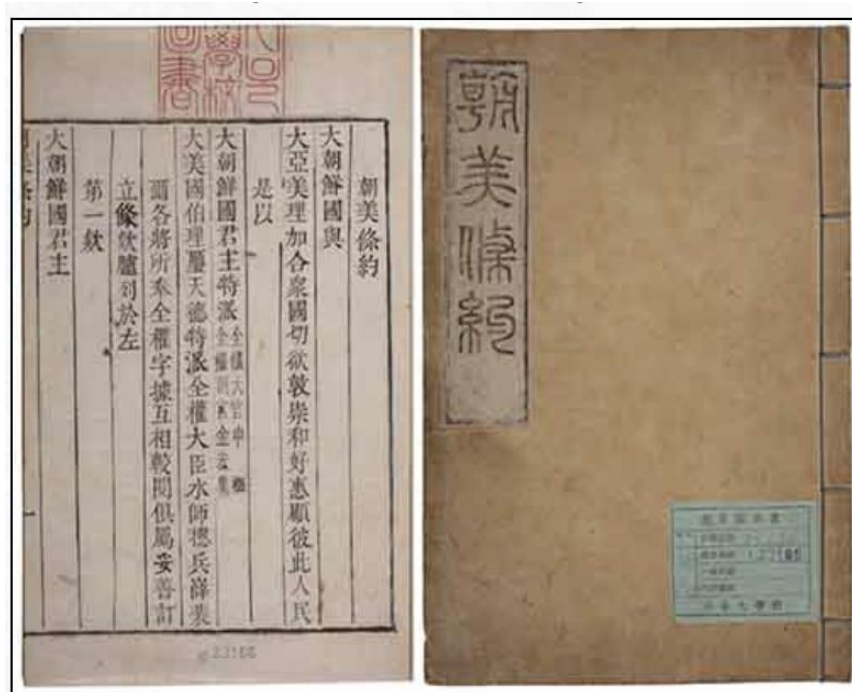 朝美條約
朝美條約
大朝鮮國與
大亞美理加合衆國切欲敦崇和好惠顧彼此人民
是以
大朝鮮國君主特派全權大官申櫶
全權副官金宏集
大美國伯理璽天德特派全權大臣水師摠兵薛裴
爾各將所奉全權字據互相較閱俱屬妥善訂
立條欵臚列於左
第一欵
大朝鮮國君主
美條約
一
23166